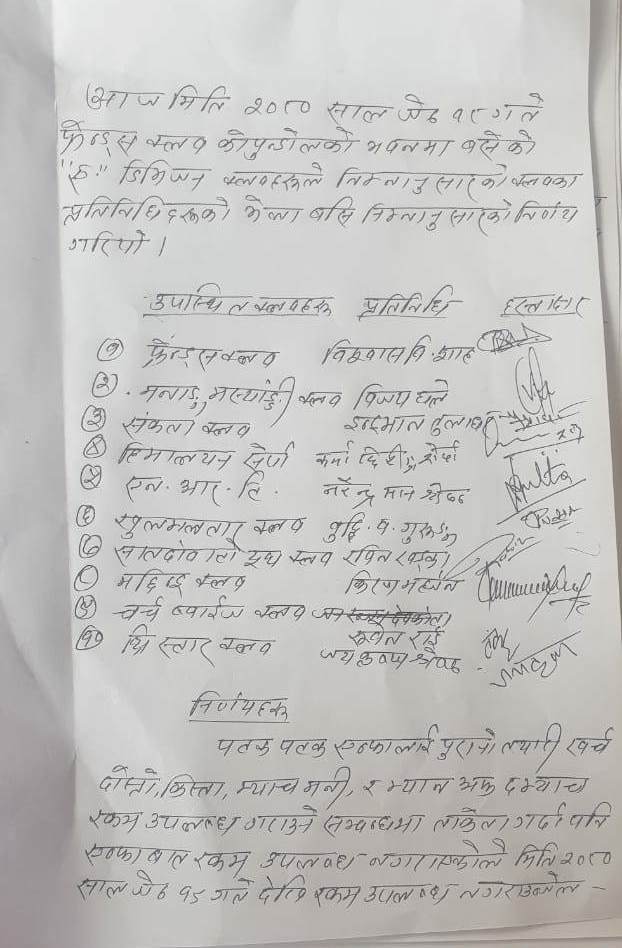 आज मिति २०८० साल जेठ १८ गते
फ्रेण्ड्स क्लव कोपुन्डोलको भवनमा बसेको
"ए" डिभिजन क्लवहरुले निम्नानुसारको क्लवका
प्रतिनिधिहरुको भेला बसि निम्नानुसारको निर्णय
गरियो ।
उपस्थित क्लवहरु प्रतिनिधि हस्ताक्षर
१ फ्रेण्ड्स क्लव विश्वास वि. शाह
२. मनाङ मर्स्याङ्दी क्लव विजय घले
३ संकटा क्लव इन्द्रमान तुलाधर
४ हिमालयन शेर्पा कर्मा छिरीङ शेर्पा
५ एन. आर. टि. नरेन्द्र मान श्रेष्ठ
६ खुमलटार क्लव बुद्धि. ब. गुरुङ
७ सातदोवाटो युथ क्लव रविन खड्का
८ मछिन्द्र क्लव किरण महर्जन
९ चर्च ब्वाईज क्लव
राई
१० थ्रि स्टार क्लव जय कृष्ण श्रेष्ठ
निर्णयहरु
पटक पटक एन्फालाई पुरानो तयारी खर्च
दोस्रो, किस्ता, म्याच मनी, र म्यान अफ द म्याच
रकम उपलब्ध गराउने सम्बन्धमा ताकेता गर्दा पनि
एन्फा बाट रकम उपलब्ध नगराएकोले मिति २०८०
साल जेठ १९ गते देखि रकम उपलब्ध नगराउन्जेल -